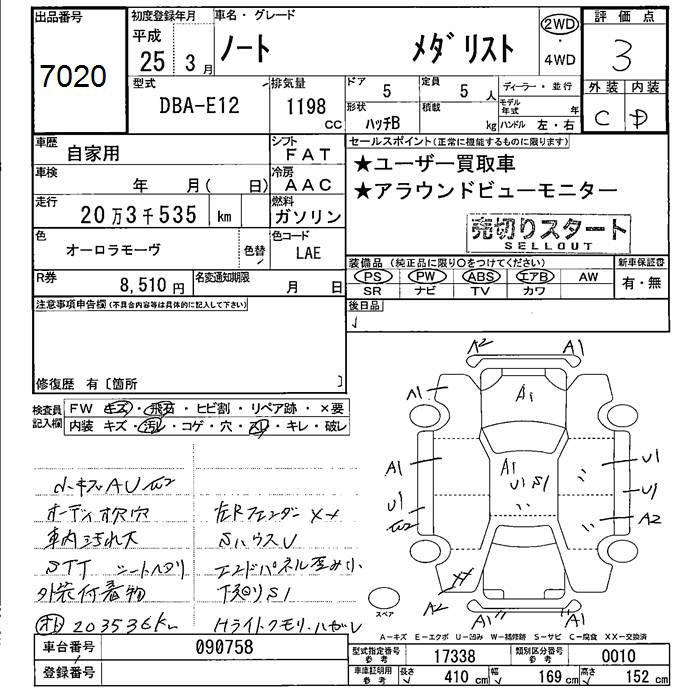 出品番号
7020
初度登録年月
平成
25年3月
車名・グレード
ノート メダリスト
2WD
・
4WD
評価点
3
外装 内装
C D
型式
DBA-E12
排気量
1198
CC
ドア
5
定員
5人
形状
ハッチB
積載
kg
ディーラー・並行
モデル年式 年
ハンドル 左・右
車歴
自家用
シフト
FAT
車検
年 月( 日)
冷房
AAC
走行
20万3千535 km
燃料
ガソリン
色
オーロラモーヴ
色替
色コード
LAE
R券
8,510円
名変通知期限
月 日
セールスポイント(正常に機能するものに限ります)
★ユーザー買取車
★アラウンドビューモニター
売切りスタート
SELLOUT
装備品(純正品に限り○をつけてください)
新車保証書
PS PW ABS エアB AW
SR ナビ TV カワ
有・無
後日品
注意事項申告欄(不具合内容等は具体的に記入して下さい)
修復歴 有〔箇所 〕
検査員
記入欄
FW キズ・飛石・ヒビ割・リペア跡・×要
内装 キズ・汚レ・コゲ・穴・スリ・キレ・破レ
小キズAU
オーディオ吹穴
車内汚れ大
STT シートヘタリ
外装付着物
203536km
左Rフェンダー××
SハウスU
エンドパネル歪み小
下廻りS1
Hライトクモリ、ハガレ
A2 A1
A1 A1
A1 A1 U1 S1 U1
U1 U1
A2
A2 XX
A1 A1
スペア
A-キズ E-エクボ U-凹み W-補修跡 S-サビ C-腐食 XX-交換済
車台番号
090758
登録番号
型式指定番号
参考
17338
類別区分番号
参考
0010
車庫証明用
参考
長さ 410cm
幅 169cm
高さ 152cm